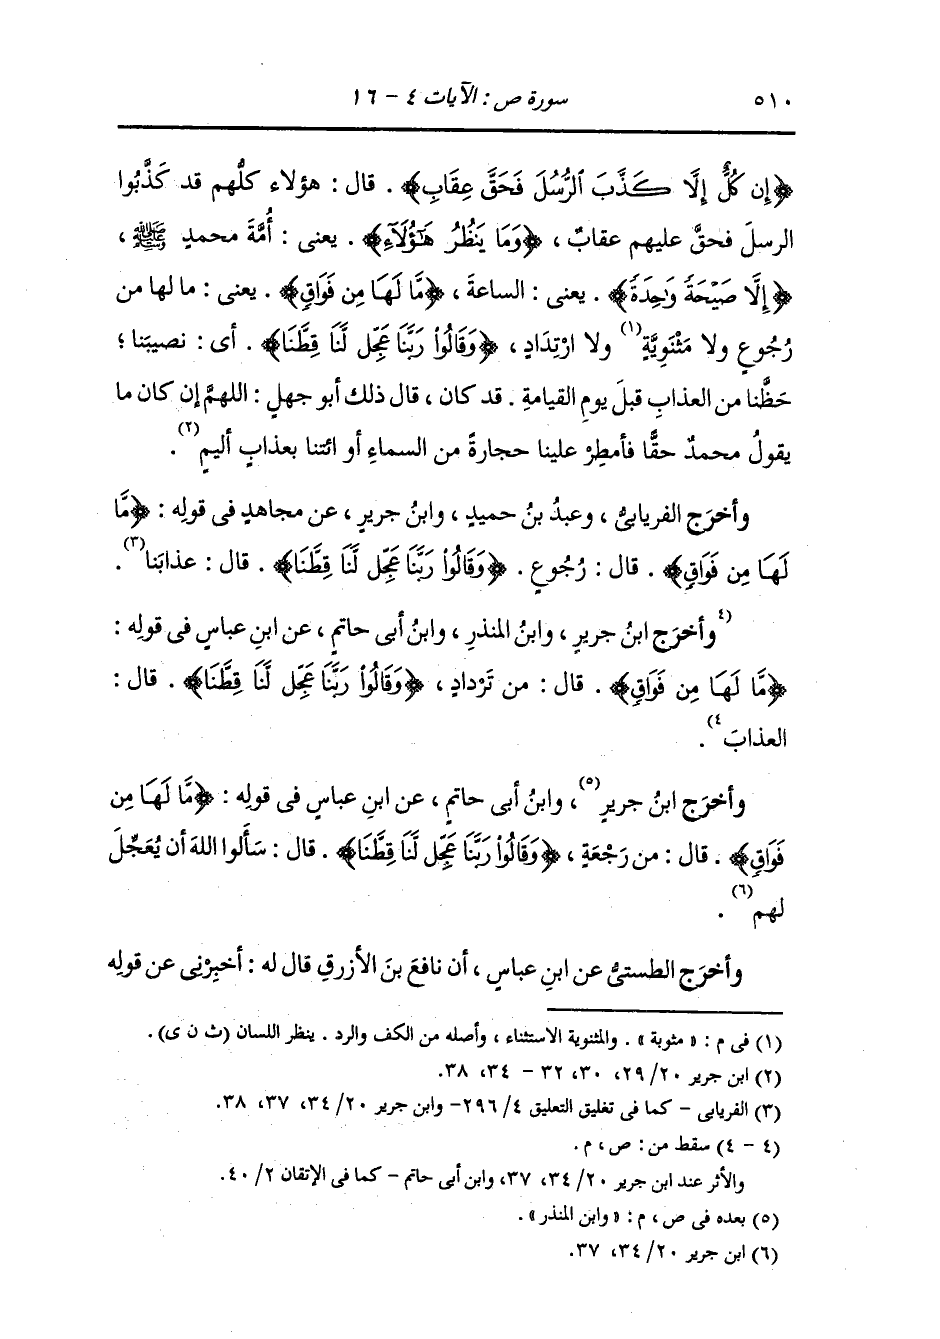 ٥١٠ سورة ص : الآيات ٤ - ١٦
﴿إِن كُلٌّ إِلَّا كَذَّبَ ٱلرُّسُلَ فَحَقَّ عِقَابِ﴾ . قال : هؤلاء كلُّهم قد كَذَّبُوا
الرسلَ فحقَّ عليهم عقابٌ ، ﴿وَمَا يَنظُرُ هَٰٓؤُلَآءِ﴾ . يعنى : أُمَّةَ محمدٍ ﷺ ،
﴿إِلَّا صَيْحَةً وَٰحِدَةً﴾ . يعنى : الساعةَ ، ﴿مَّا لَهَا مِن فَوَاقٍ﴾ . يعنى : ما لها من
رُجُوعٍ ولا مَثْنَوِيَّةٍ(١) ولا ارْتِدَادٍ ، ﴿وَقَالُواْ رَبَّنَا عَجِّل لَّنَا قِطَّنَا﴾ . أى : نصيبَنا ؛
حَظَّنا من العذابِ قبلَ يومِ القيامةِ . قد كان ، قال ذلك أبو جهلٍ : اللهمَّ إن كان ما
يقولُ محمدٌ حقًّا فأمطِرْ علينا حجارةً من السماءِ أو ائتنا بعذابٍ أليمٍ(٢) .
وأخرَج الفريابىُّ ، وعبدُ بنُ حميدٍ ، وابنُ جريرٍ ، عن مجاهدٍ فى قولِه : ﴿مَّا
لَهَا مِن فَوَاقٍ﴾ . قال : رُجُوعٍ . ﴿وَقَالُواْ رَبَّنَا عَجِّل لَّنَا قِطَّنَا﴾ . قال : عذابَنا(٣) .
(٤وأخرَج ابنُ جريرٍ ، وابنُ المنذرِ ، وابنُ أبى حاتمٍ ، عن ابنِ عباسٍ فى قولِه :
﴿مَّا لَهَا مِن فَوَاقٍ﴾ . قال : من تَرْدادٍ ، ﴿وَقَالُواْ رَبَّنَا عَجِّل لَّنَا قِطَّنَا﴾ . قال :
العذابَ٤) .
وأخرَج ابنُ جريرٍ(٥) ، وابنُ أبى حاتمٍ ، عن ابنِ عباسٍ فى قولِه : ﴿مَّا لَهَا مِن
فَوَاقٍ﴾ . قال : من رَجْعَةٍ ، ﴿وَقَالُواْ رَبَّنَا عَجِّل لَّنَا قِطَّنَا﴾ . قال : سَأَلوا اللهَ أن يُعَجِّلَ
لهم(٦) .
وأخرَج الطستىُّ عن ابنِ عباسٍ ، أن نافعَ بنَ الأزرقِ قال له : أخبِرْنِى عن قولِه
(١) فى م : « مثوبة » . والمثنوية الاستثناء ، وأصله من الكف والرد . ينظر اللسان (ث ن ى) .
(٢) ابن جرير ٢٠/ ٢٩، ٣٠، ٣٢ - ٣٤، ٣٨.
(٣) الفريابى - كما فى تغليق التعليق ٤/ ٢٩٦- وابن جرير ٢٠/ ٣٤، ٣٧، ٣٨.
(٤ - ٤) سقط من : ص ، م .
والأثر عند ابن جرير ٢٠/ ٣٤، ٣٧، وابن أبى حاتم - كما فى الإتقان ٢/ ٤٠.
(٥) بعده فى ص ، م : « وابن المنذر » .
(٦) ابن جرير ٢٠/ ٣٤، ٣٧.